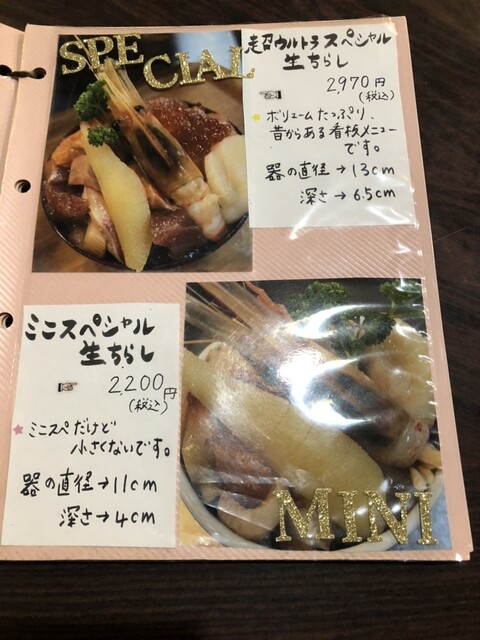 SPECIAL
超ウルトラスペシャル
生ちらし
☞ 2,970円
(税込)
★ ボリュームたっぷり、
昔からある看板メニュー
です。
器の直径→13cm
深さ→6.5cm
ミニスペシャル
生ちらし
☞ 2,200円
(税込)
★ ミニスペだけど
小さくないです。
器の直径→11cm
深さ→4cm
MINI